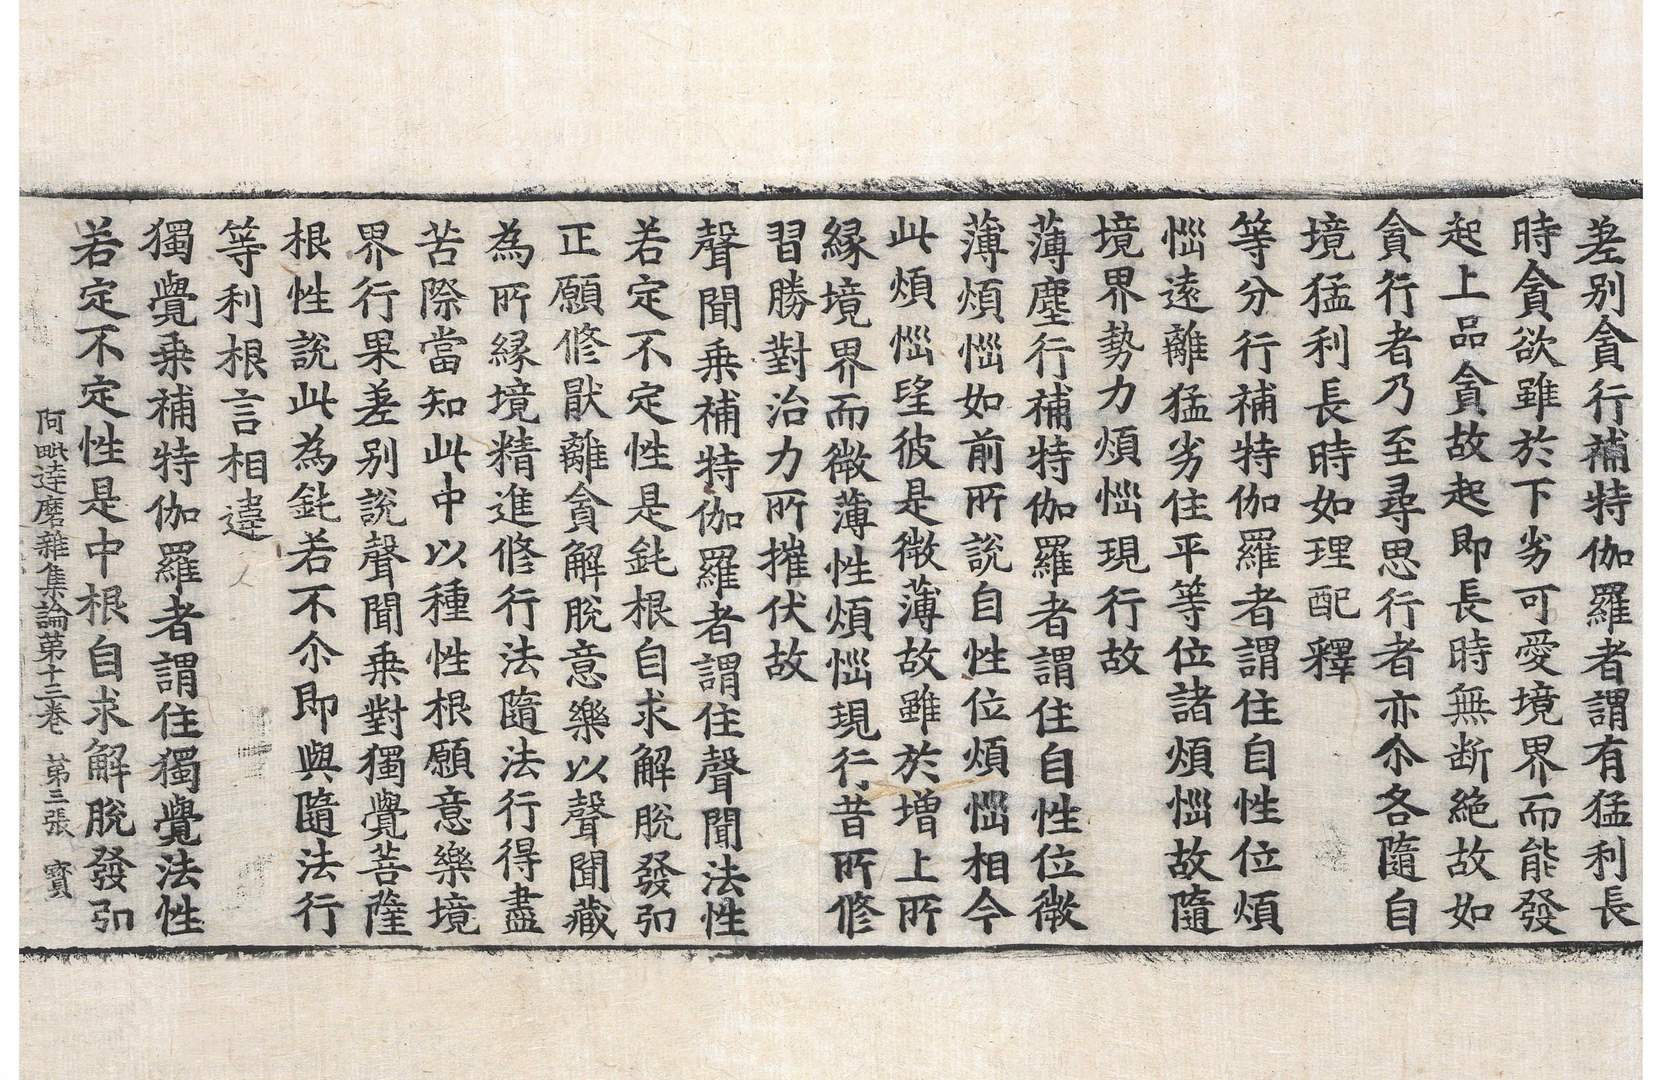 差別貪行補特伽羅者謂有猛利長
時貪欲雖於下劣可愛境界而能發
起上品貪故起即長時無断絶故如
貪行者乃至尋思行者亦尒各隨自
境猛利長時如理配釋
等分行補特伽羅者謂住自性位煩
惱遠離猛劣住平等位諸煩惱故隨
境界勢力煩惱現行故
薄塵行補特伽羅者謂住自性位微
薄煩惱如前所說自性位煩惱相今
此煩惱望彼是微薄故雖於增上所
縁境界而微薄性煩惱現行昔所修
習勝對治力所摧伏故
聲聞乗補特伽羅者謂住聲聞法性
若定不定性是鈍根自求解脫發引
正願修猒離貪解脫意樂以聲聞藏
為所縁境精進修行法隨法行得盡
苦際當知此中以種性根願意樂境
界行果差別說聲聞乗對獨覺菩薩
根性說此為鈍若不尒即與隨法行
等利根言相違
獨覺乗補特伽羅者謂住獨覺法性
若定不定性是中根自求解脫發引
阿毗達磨雜集論第十三卷 第三張 寳